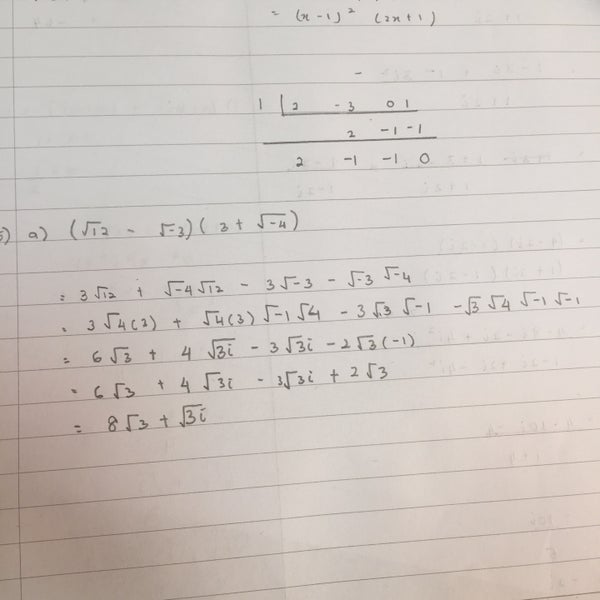 = (x-1)² (2x+1)
-
1 | 2 -3 0 1
2 -1 -1
2 -1 -1 0
a) (√12 - √-3)(3 + √-4)
= 3√12 + √-4√12 - 3√-3 - √-3√-4
= 3√4(3) + √4(3)√-1√4 - 3√3√-1 - √3√4√-1√-1
= 6√3 + 4√3i - 3√3i - 2√3(-1)
= 6√3 + 4√3i - 3√3i + 2√3
= 8√3 + √3i